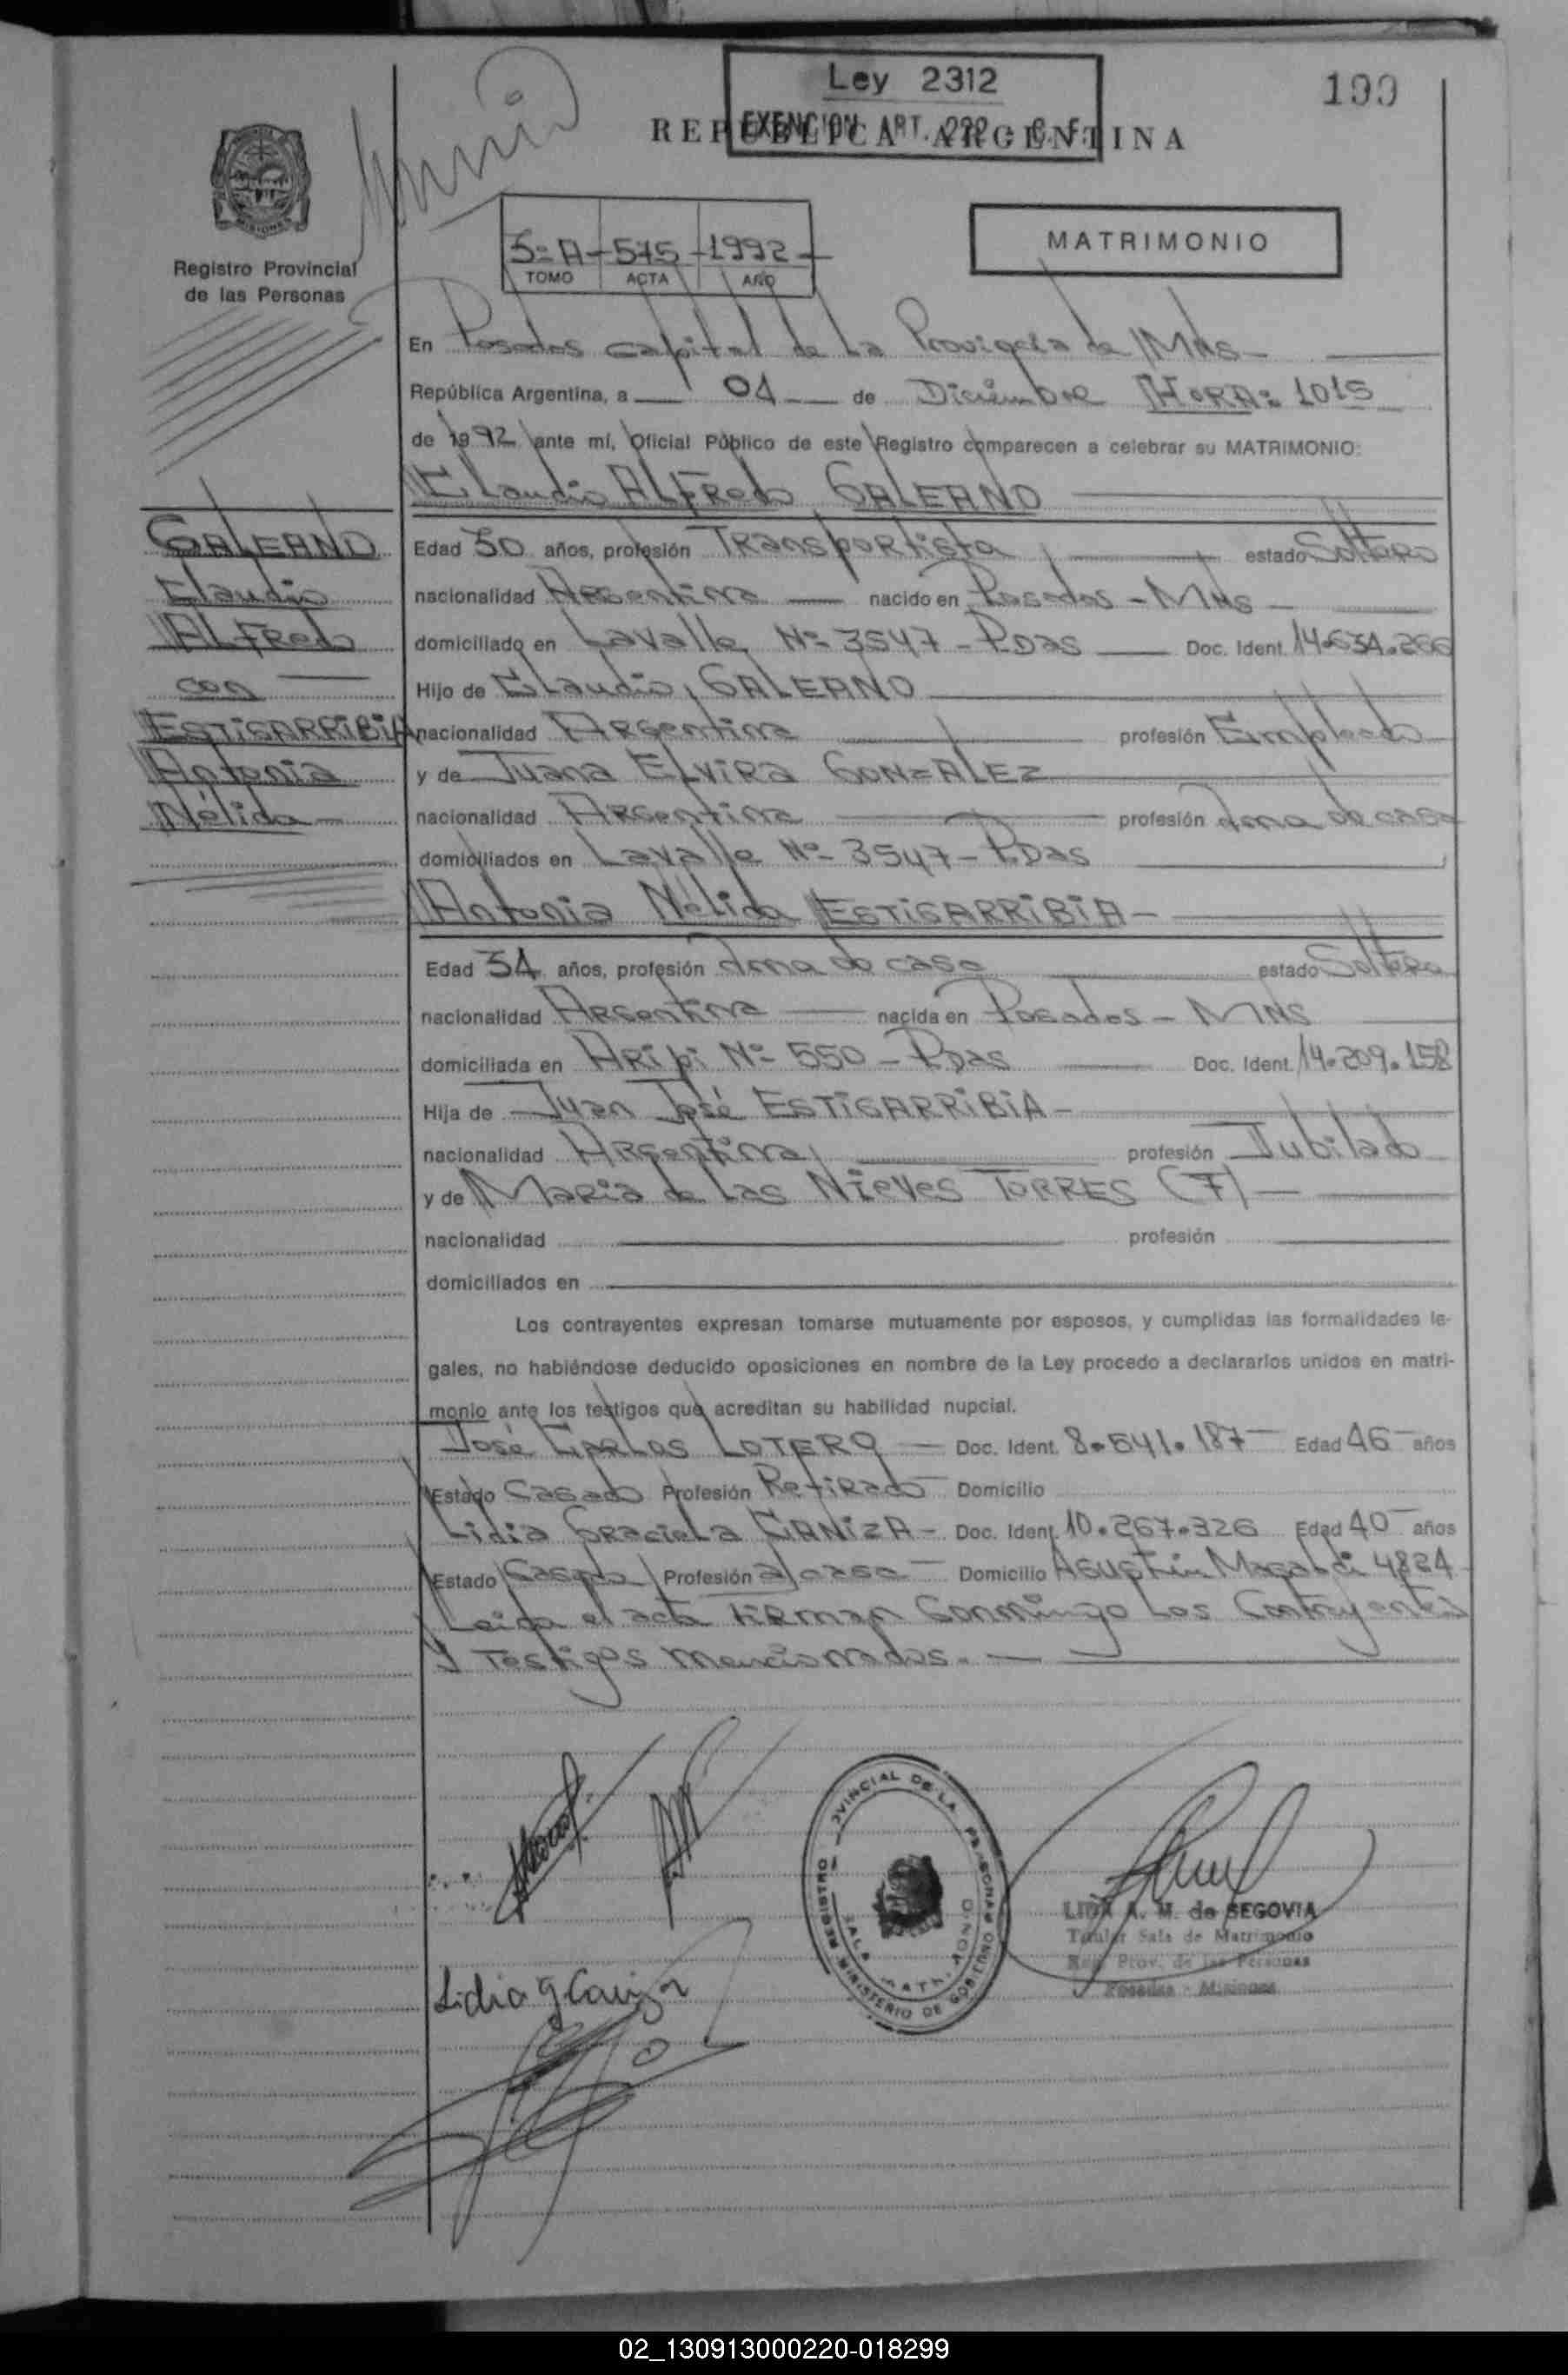 Ley 2312
199
EXENCION ART. 292 C. F.
REPUBLICA ARGENTINA
MISIONES
Registro Provincial
de las Personas
5=A - 575 - 1992 -
TOMO ACTA AÑO
MATRIMONIO
En Posadas capital de La Provincia de MNS -
República Argentina, a 04 de Diciembre HORA: 1015
de 1992 ante mí, Oficial Público de este Registro comparecen a celebrar su MATRIMONIO:
Claudio ALFRedo GALEANO
GALEANO
Claudio
ALFRedo
con
ESTIGARRIBIA
Antonia
Nélida
Edad 30 años, profesión TRansportista estado Soltero
nacionalidad ARGentina nacido en Posadas - MNS -
domiciliado en Lavalle Nº 3547 - PDas Doc. Ident. 14.634.266
Hijo de Claudio GALEANO
nacionalidad ARGentina profesión Empleado
y de Juana ELVIRA GONZALEZ
nacionalidad ARGentina profesión Ama de casa
domiciliados en Lavalle Nº 3547 - PDas
Antonia Nélida ESTIGARRIBIA -
Edad 34 años, profesión Ama de casa estado Soltera
nacionalidad ARGentina nacida en Posados - MNS
domiciliada en ARipi Nº 550 - PDas Doc. Ident. 14.209.158
Hija de Juan José ESTIGARRIBIA -
nacionalidad ARGentina profesión Jubilado
y de MaRia de Las Nieves TORRES (F) -
nacionalidad profesión
domiciliados en
Los contrayentes expresan tomarse mutuamente por esposos, y cumplidas las formalidades le-
gales, no habiéndose deducido oposiciones en nombre de la Ley procedo a declararlos unidos en matri-
monio ante los testigos que acreditan su habilidad nupcial.
José CARLOS LOTERO - Doc. Ident. 8.541.187 Edad 46 años
Estado Casado Profesión RetiRado Domicilio
Lidia GRaciela CANIZA - Doc. Ident. 10.267.326 Edad 40 años
Estado Casada Profesión a/casa Domicilio AGustin Magaldi 4824
Leida el acta FIRman Conmingo Los Contrayentes
Y Testigos mencionados. -
REGISTRO PROVINCIAL DE LAS PERSONAS
MINISTERIO DE GOBIERNO
SALA MATRIMONIO
LIDIA A. M. de SEGOVIA
Titular Sala de Matrimonio
Reg. Prov. de las Personas
Posadas - Misiones
Lidia G Caniza
02_130913000220-018299